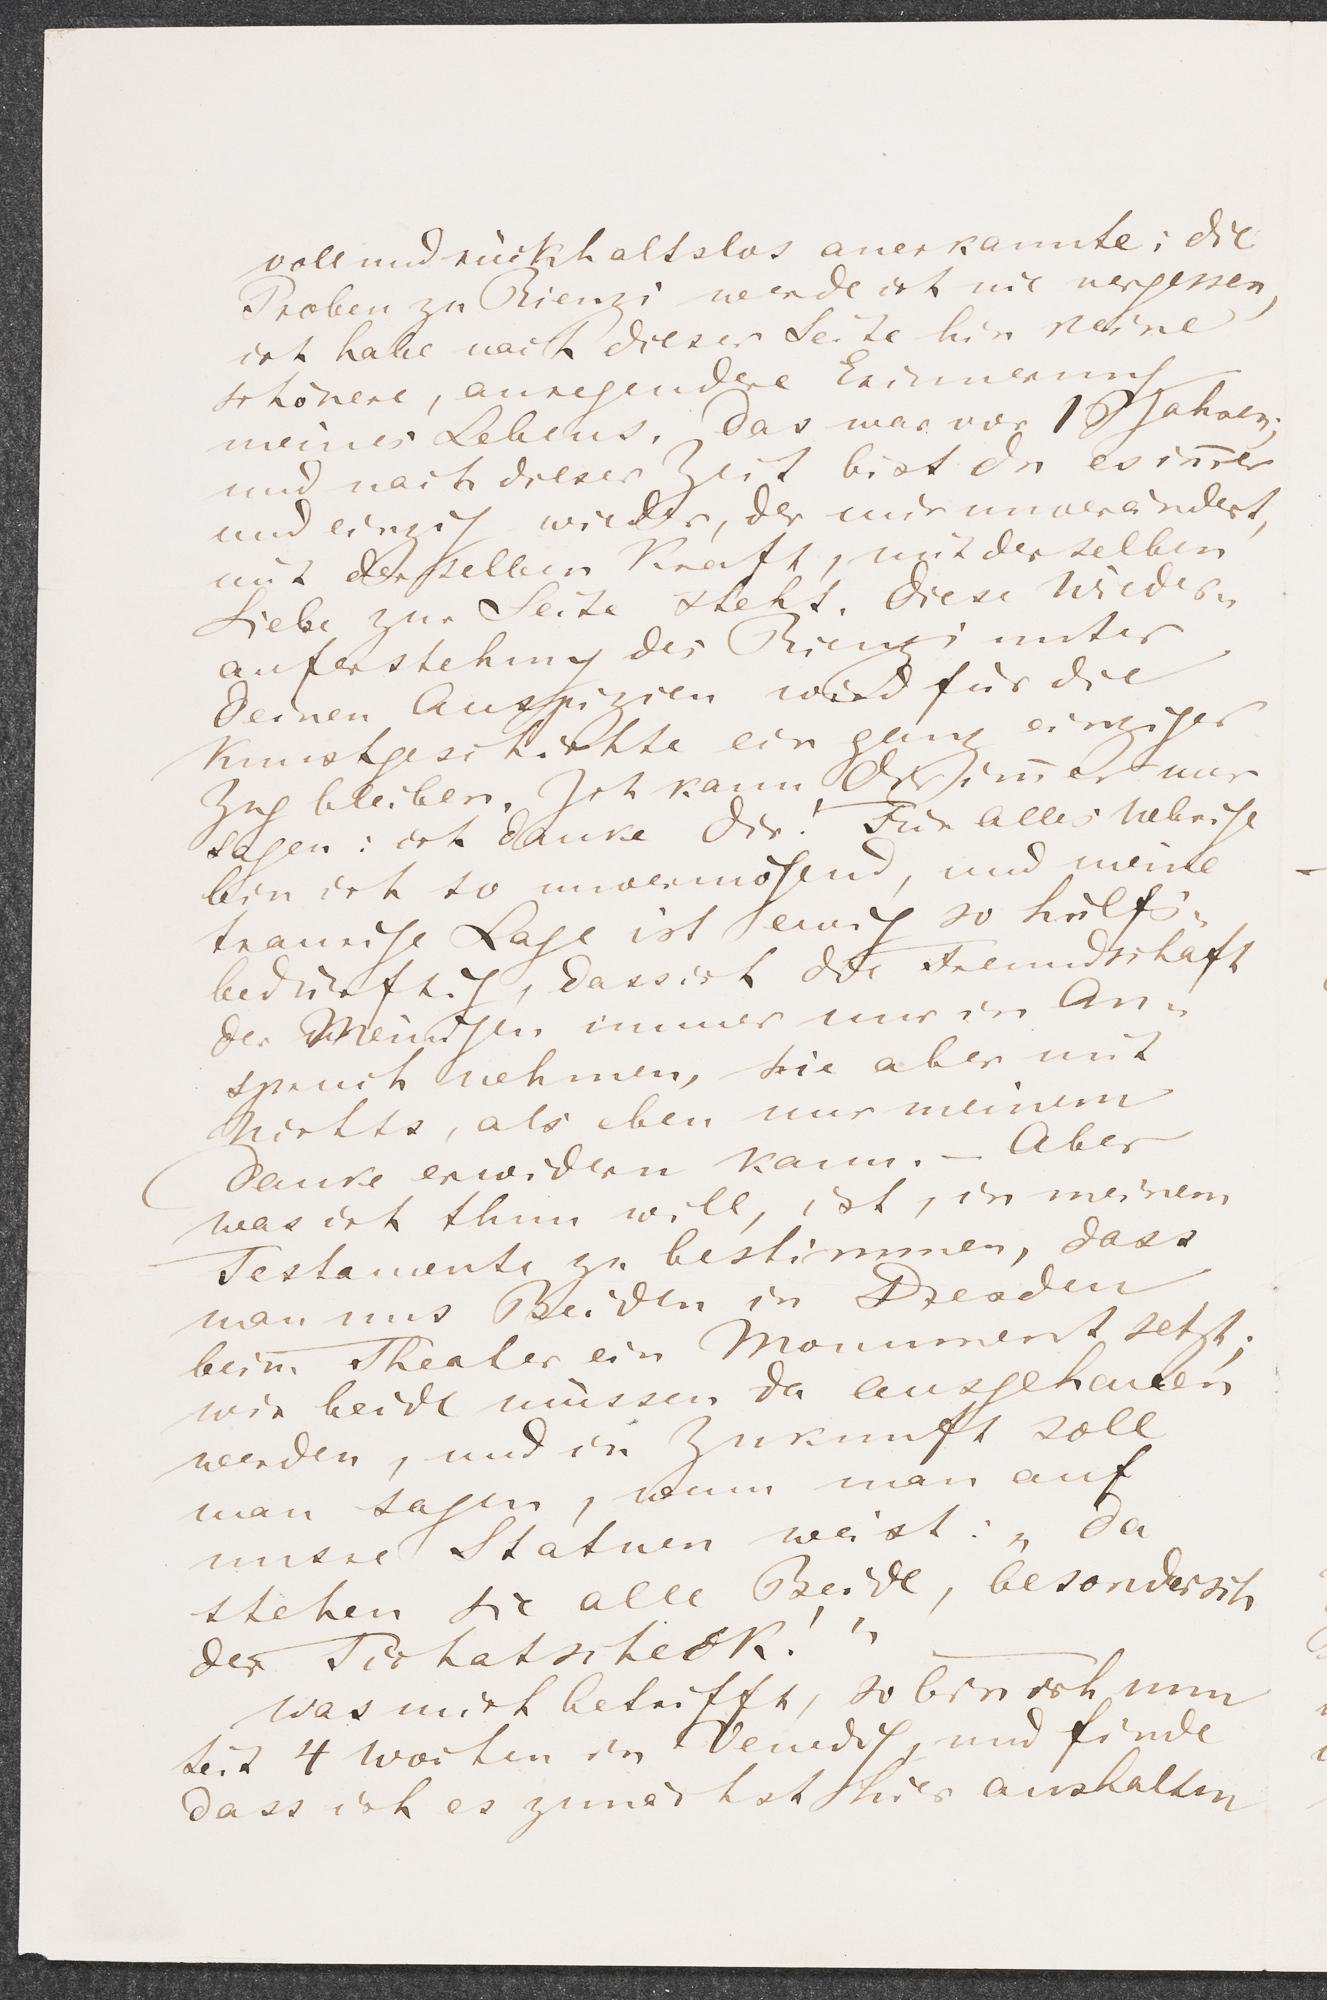 voll und rückhaltslos anerkannte; die
Proben zu Rienzi werde ich nie vergessen,
ich habe nach dieser Seite hin keine
schönere, anregendere Erinnerung
meines Lebens. Das war vor 16 Jahren;
und nach dieser Zeit bist du es im̅er
und einzig wieder, der mir unverändert,
mit derselben Kraft, mit derselben
Liebe zur Seite steht. Diese Wieder„
auferstehung des Rienzi unter
Deinen Auspizien wird für die
Kunstgeschichte ein ganz einziger
Zug bleiben. Ich kann Dir im̅er nur
sagen: ich danke Dir! Für alles Uebrige
bin ich so unvermögend, und meine
traurige Lage ist ewig so hülfs„
bedürftig, dass ich die Freundschaft
der Meinigen immer nur in An„
spruch nehmen, sie aber mit
Nichts, als eben nur meinem
Danke erwidern kann. – Aber
was ich thun will, ist, in meinem
Testamente zu bestimmen, dass
man uns Beiden in Dresden
beim Theater ein Monument setzt;
wir beide müssen da ausgehauen
werden, und in Zukunft soll
man sagen, wenn man auf
unsre Statuen weist: „Da
stehen sie alle Beide, besondersch
der Tichatscheck!"
Was mich betrifft, so bin ich nun
seit 4 Wochen in Venedig, und finde
dass ich es zunächst hier aushalten